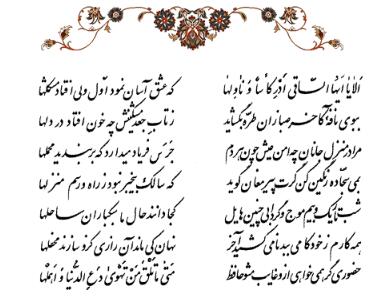 اَلا یا اَیُّهَا السّاقی اَدِر کَأساً وَ ناوِلها که عشق آسان نمود اول ولی افتاد مشکلها
ببوی نافهٔ کاخر صبا زان طرّه بگشاید ز تاب جعد مشکینش چه خون افتاد در دلها
مرا در منزل جانان چه امن عیش چون هر دم جرس فریاد میدارد که بربندید محملها
بمی سجّاده رنگین کن گرت پیر مغان گوید که سالک بیخبر نبود ز راه و رسم منزلها
شب تاریک و بیم موج و گردابی چنین هایل کجا دانند حال ما سبکباران ساحلها
همه کارم ز خود کامی ببدنامی کشید آخر نهان کی ماند آن رازی کزو سازند محفلها
حضوری گر همی خواهی ازو غایب مشو حافظ مَتی ما تَلقَ مَن تَهوی دَعِ الدُّنیا وَ اَهمِلها